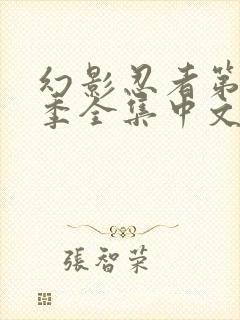 幻影忍者第
季全集中文
張智荣